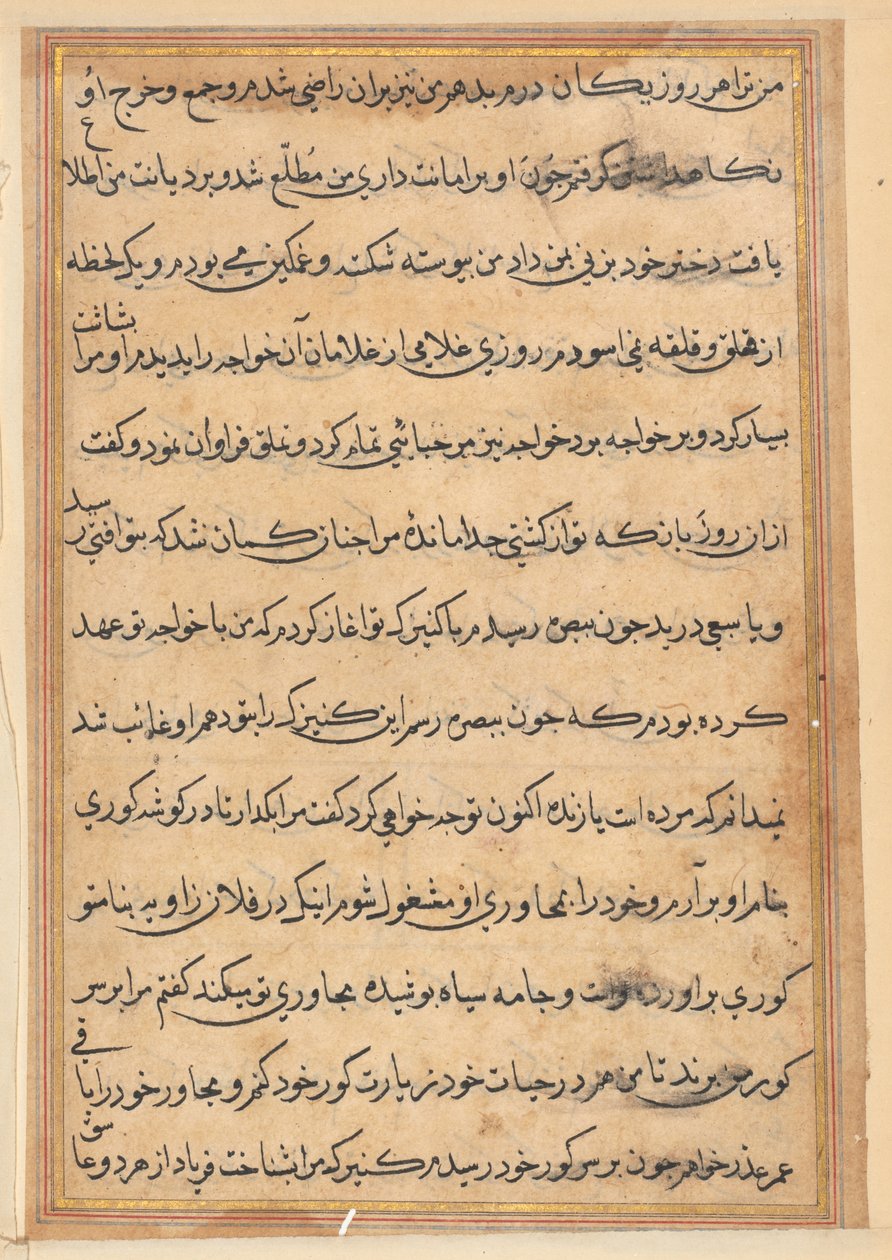 من ترا هر روز یکان درم بدهم من نیز بران راضی شدم و جمع و خرج او
نکاه داشتن کرفتم جون او بر امانت داری من مُطلّع شد و بر دیانت من اطلاع
یافت دختر خود بزنی بمن داد من بیوسته شکسته و غمکین می بودم و یک لحظه
از قلق و قلقه نمی اسودم روزی غلامی از غلامان آن خواجه را بدیدم او مرا بشاشت
بسیار کرد و بر خواجه برد خواجه نیز مرحبائی تمام کرد و تملق فراوان نمود و کفت
ازان روز بازکه تو از کشتی جدا ماندهٔ مرا جنان کمان نشد که بتو افتی رسید
و یا سبعی درید جون ببصره رسیدم با کنیزک تو اغاز کردم که من با خواجه تو عهد
کرده بودم که جون ببصره رسم این کنیزک را بتو دهم او غائب شد
نمیدانم که مرده است یا زنده اکنون تو جه خواهی کرد کفت مرا بکدار تا در کوشه کوری
بنام او بر آرم و خود را بمجاوری او مشغول شوم اینک در فلان زاویه بنام تو
کوری براورده است و جامه سیاه بوشیده مجاوری تو میکند کفتم مرا بر سر
کور من برند تا من هم در حیات خود زیارت کور خود کنم و مجاور خود را باقی
عمر عذر خواهم جون بر سر کور خود رسیدم کنیزک مرا بشناخت فریاد از هر دو عاشق